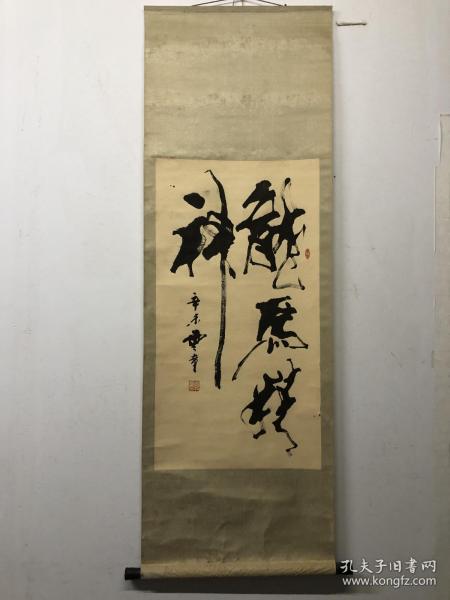 龍馬精
神
辛未
孔夫子旧书网
www.kongfz.com